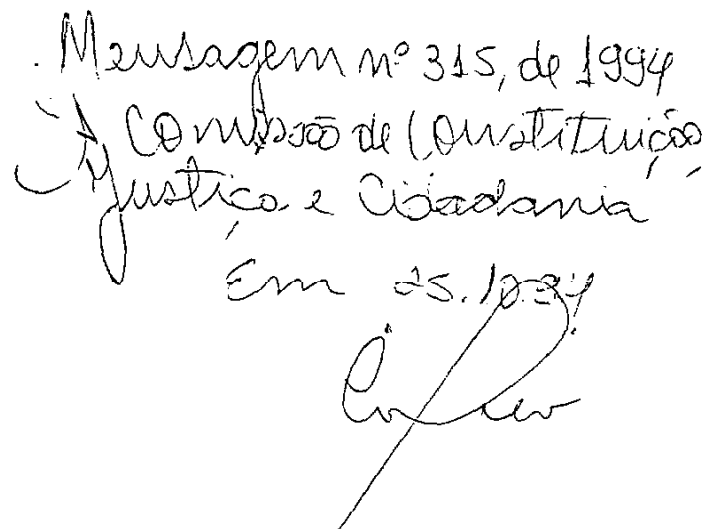 Mensagem nº 315, de 1994
À Comissão de Constituição,
Justiça e Cidadania
Em 25.10.94